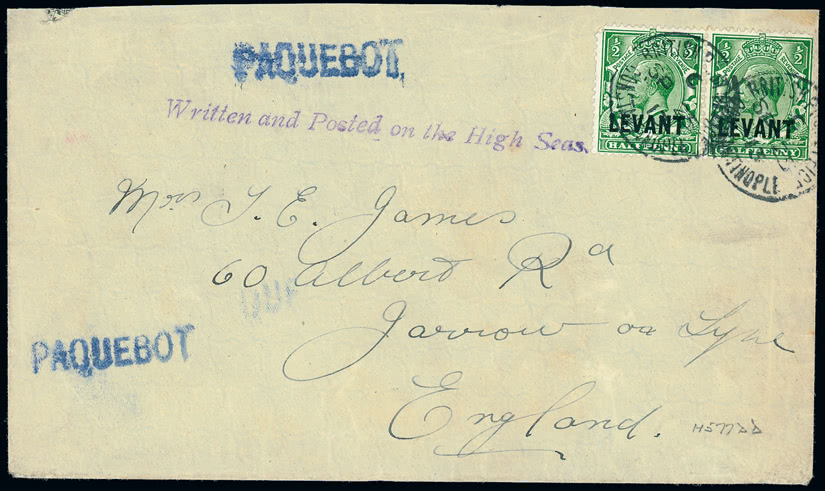 PAQUEBOT
Written and Posted on the High Seas.
½ ½
½ ½
LEVANT LEVANT
HALFPENNY HALFPENNY
Mrs J. E. James
60 Albert Rd
Jarrow on Tyne
England.
PAQUEBOT